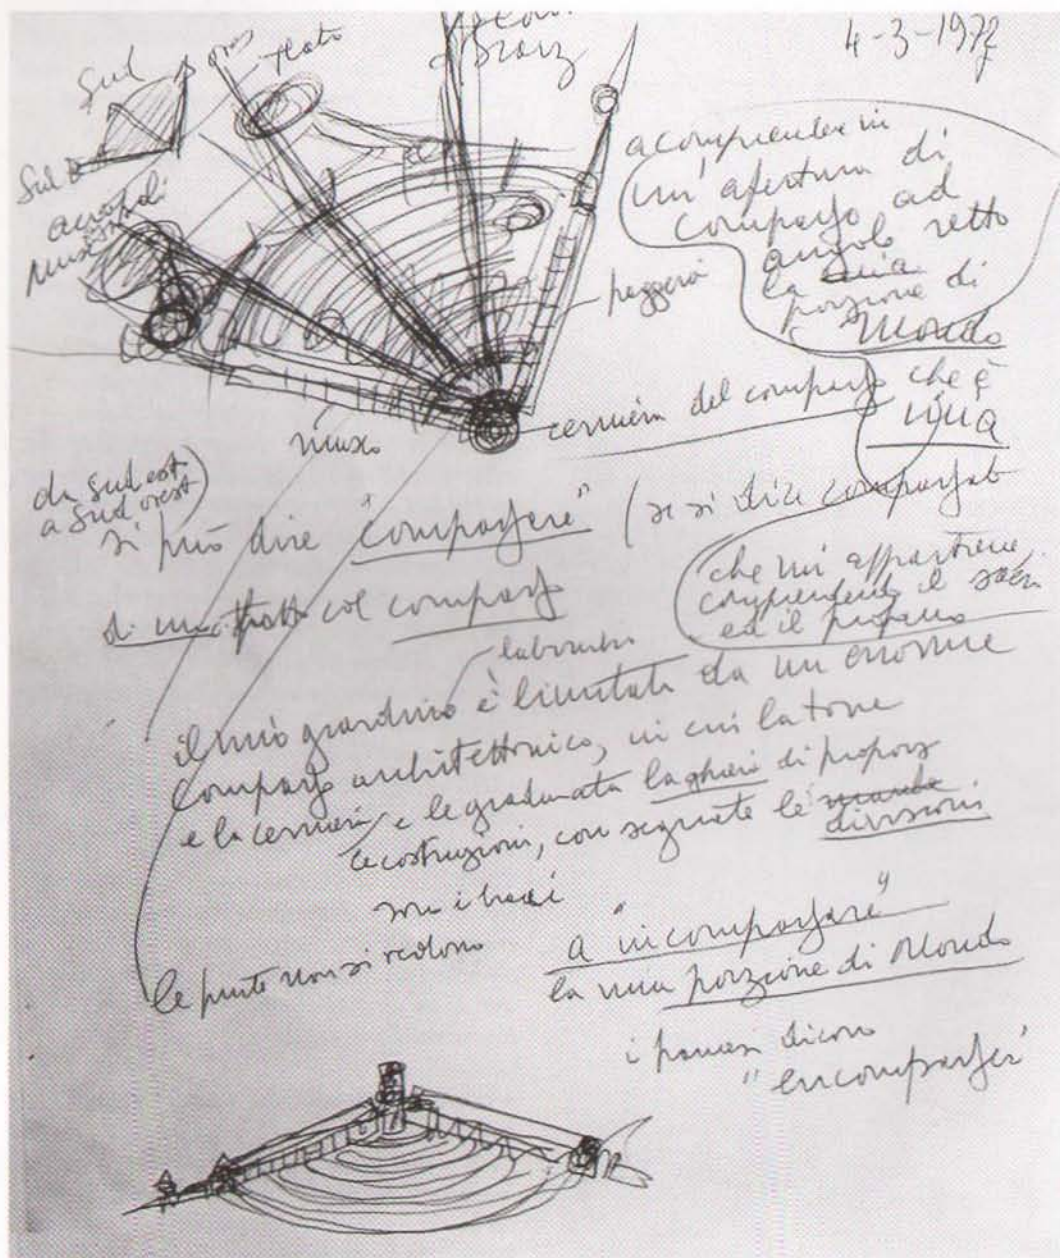 4-3-1972
Sud
teatro
Sud
acropoli
museo
a comprendere in
un'apertura di
compasso ad
angolo retto
la mia
porzione di
Mondo
che è
mia
cerniera del compasso
museo
da sud est
a sud ovest
si può dire "compassare" (se si dice compassato
di un tratto col compasso
che mi appartiene
comprendendo il sacro
ed il profano
labirinto
il mio giardino è limitato da un enorme
compasso architettonico, in cui la torre
e la cerniera, e le gradinata la ghiera di proporz
le costruzioni, con segnate le
divisioni
sono i bracci
le punte non si vedono
a "incompassare"
la mia porzione di Mondo
i francesi dicono
"encompasser"